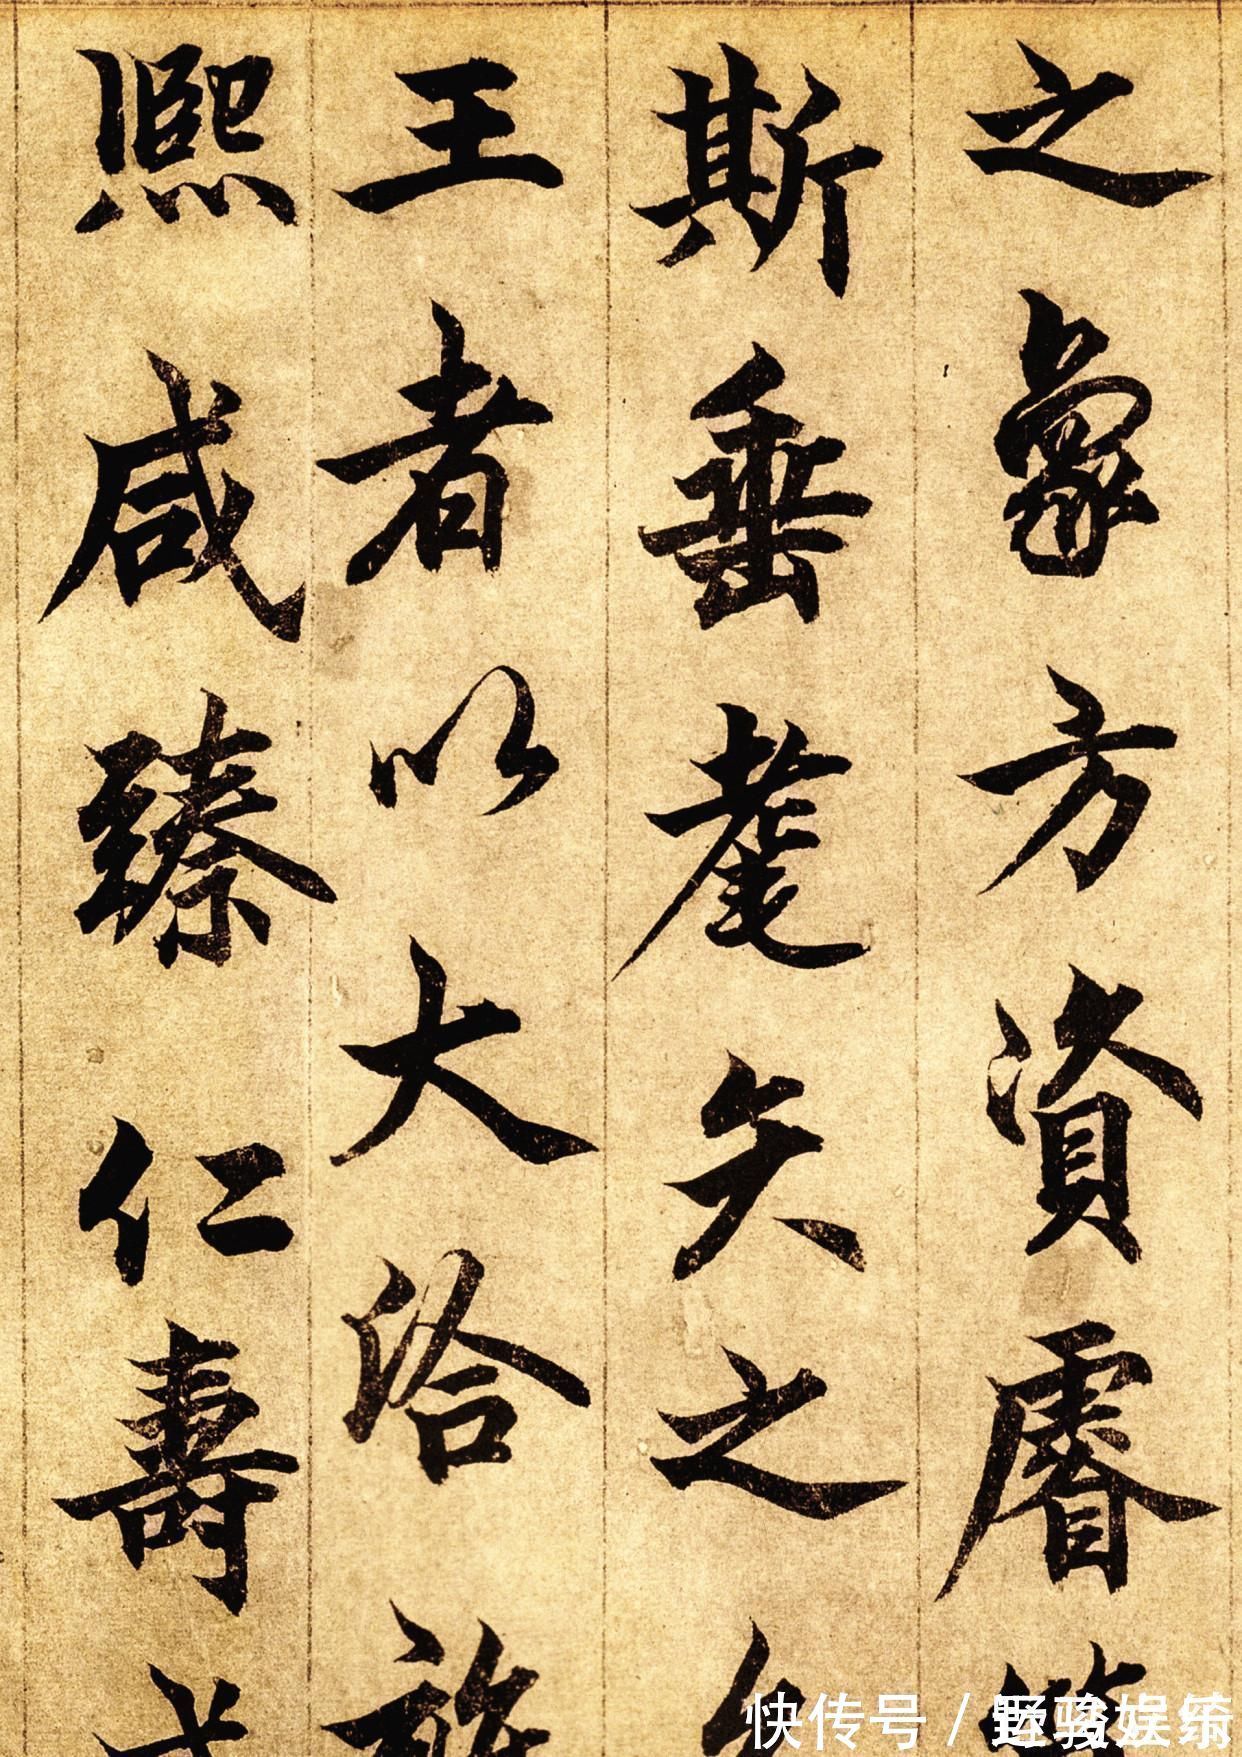 之象方資睿
斯垂耄矣之
王者以大洽
熙咸臻仁壽
快传号 /